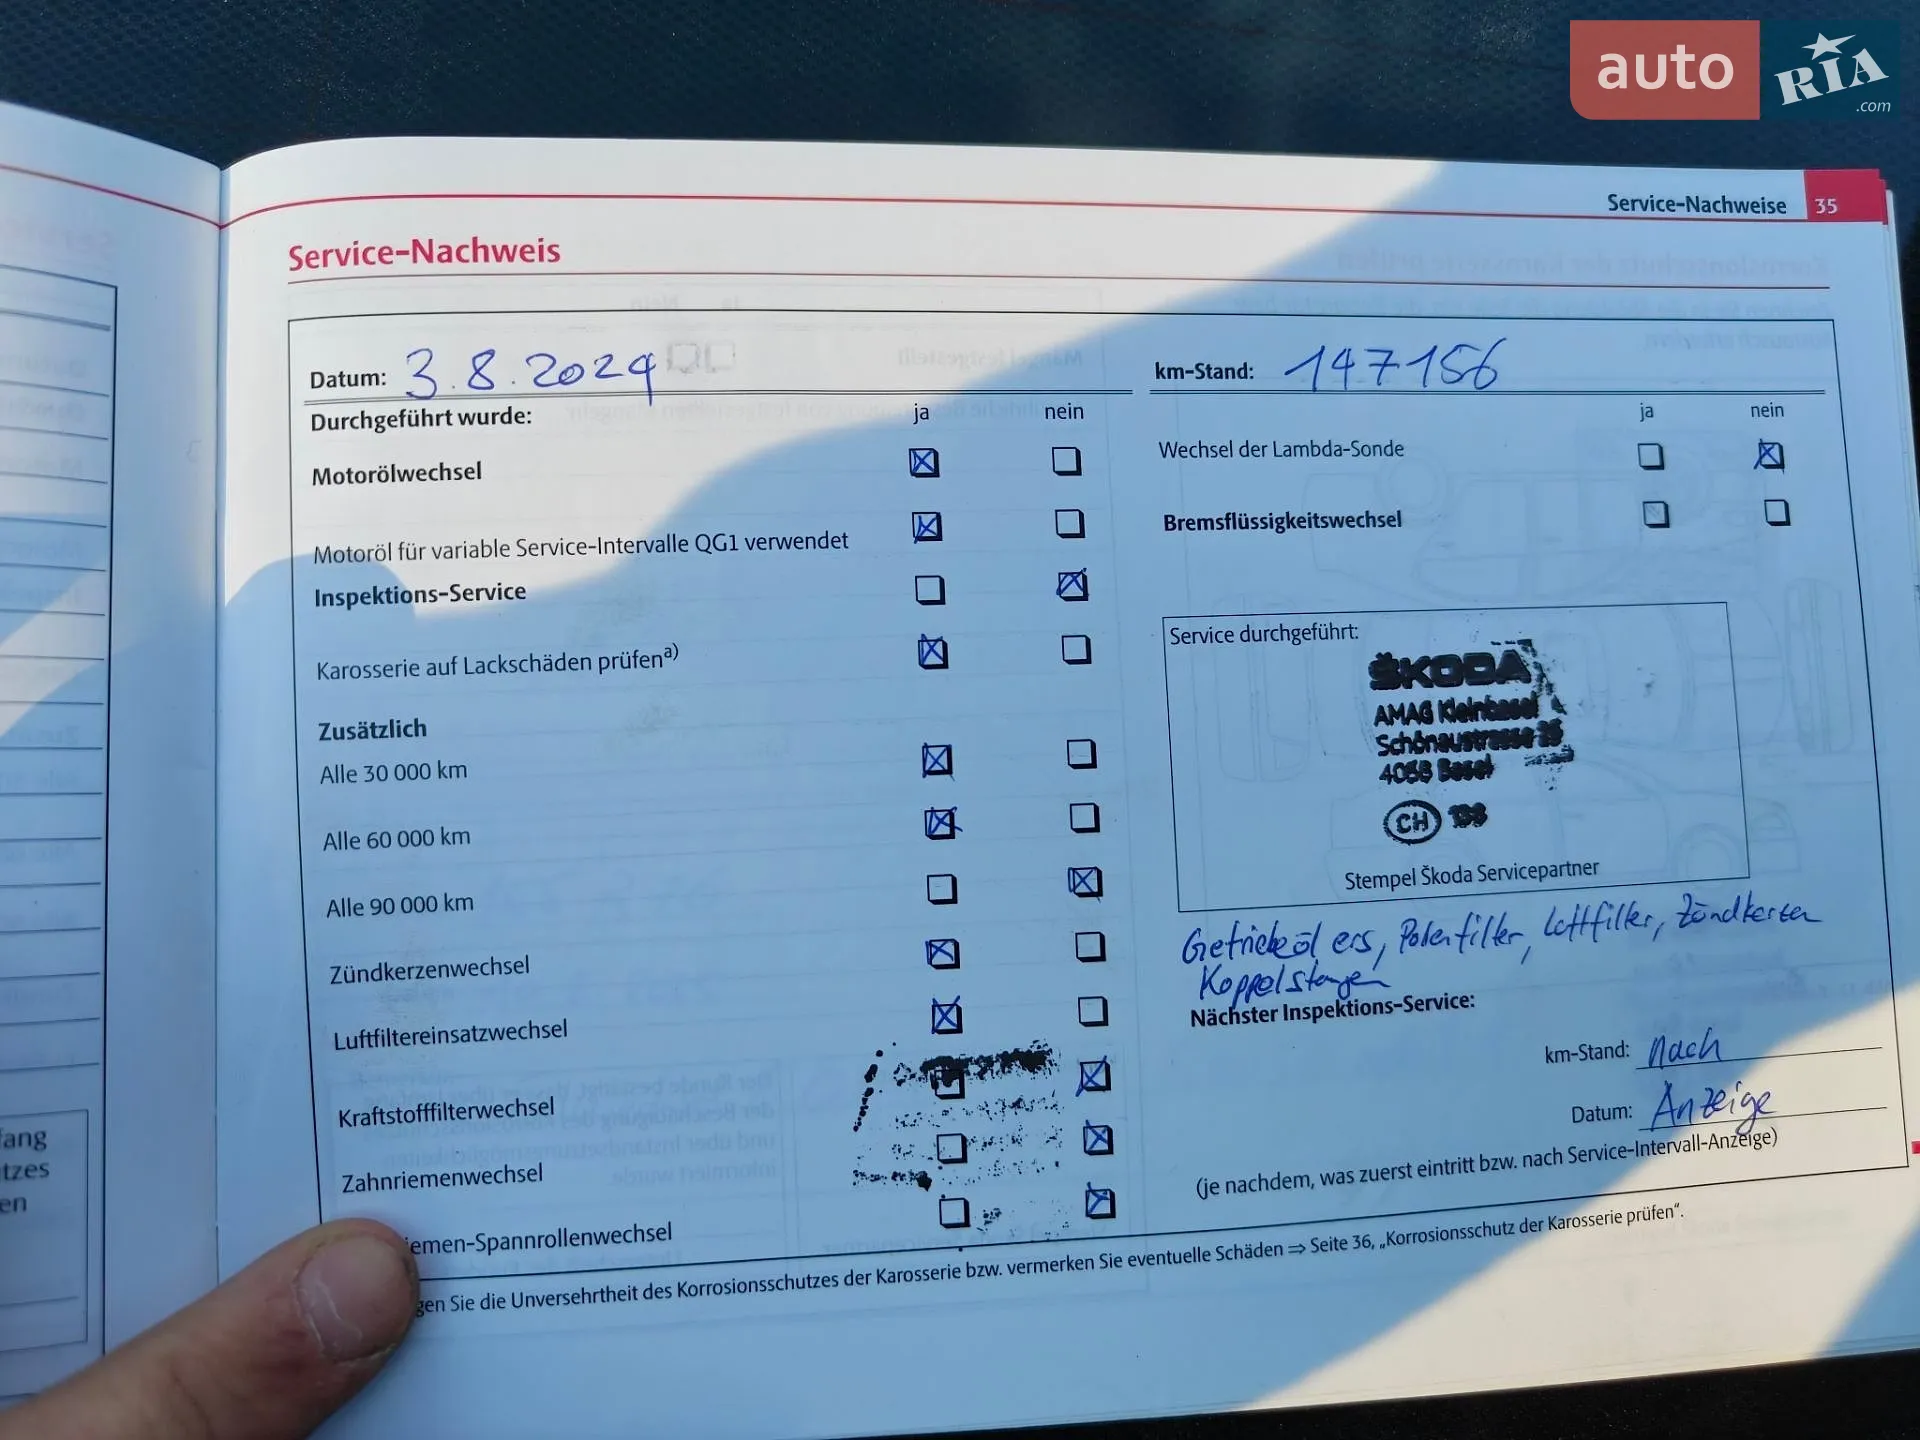 auto RIA .com
Service-Nachweise 35
Service-Nachweis
Datum: 3.8.2024
km-Stand: 147156
Durchgeführt wurde: ja nein
Motorölwechsel
Motoröl für variable Service-Intervalle QG1 verwendet
Inspektions-Service
Karosserie auf Lackschäden prüfen a)
Zusätzlich
Alle 30 000 km
Alle 60 000 km
Alle 90 000 km
Zündkerzenwechsel
Luftfiltereinsatzwechsel
Kraftstofffilterwechsel
Zahnriemenwechsel
iemen-Spannrollenwechsel
ja nein
Wechsel der Lambda-Sonde
Bremsflüssigkeitswechsel
Service durchgeführt:
ŠKODA
AMAG Kleinbasel
Schönaustrasse
Basel
CH
Stempel Škoda Servicepartner
Getriebeöl ers, Polenfilter, Luftfilter, Zündkerzen
Koppelstangen
Nächster Inspektions-Service:
km-Stand: nach
Datum: Anzeige
(je nachdem, was zuerst eintritt bzw. nach Service-Intervall-Anzeige)
gen Sie die Unversehrtheit des Korrosionsschutzes der Karosserie bzw. vermerken Sie eventuelle Schäden ⇒ Seite 36, „Korrosionsschutz der Karosserie prüfen“.
fang
tzes
en